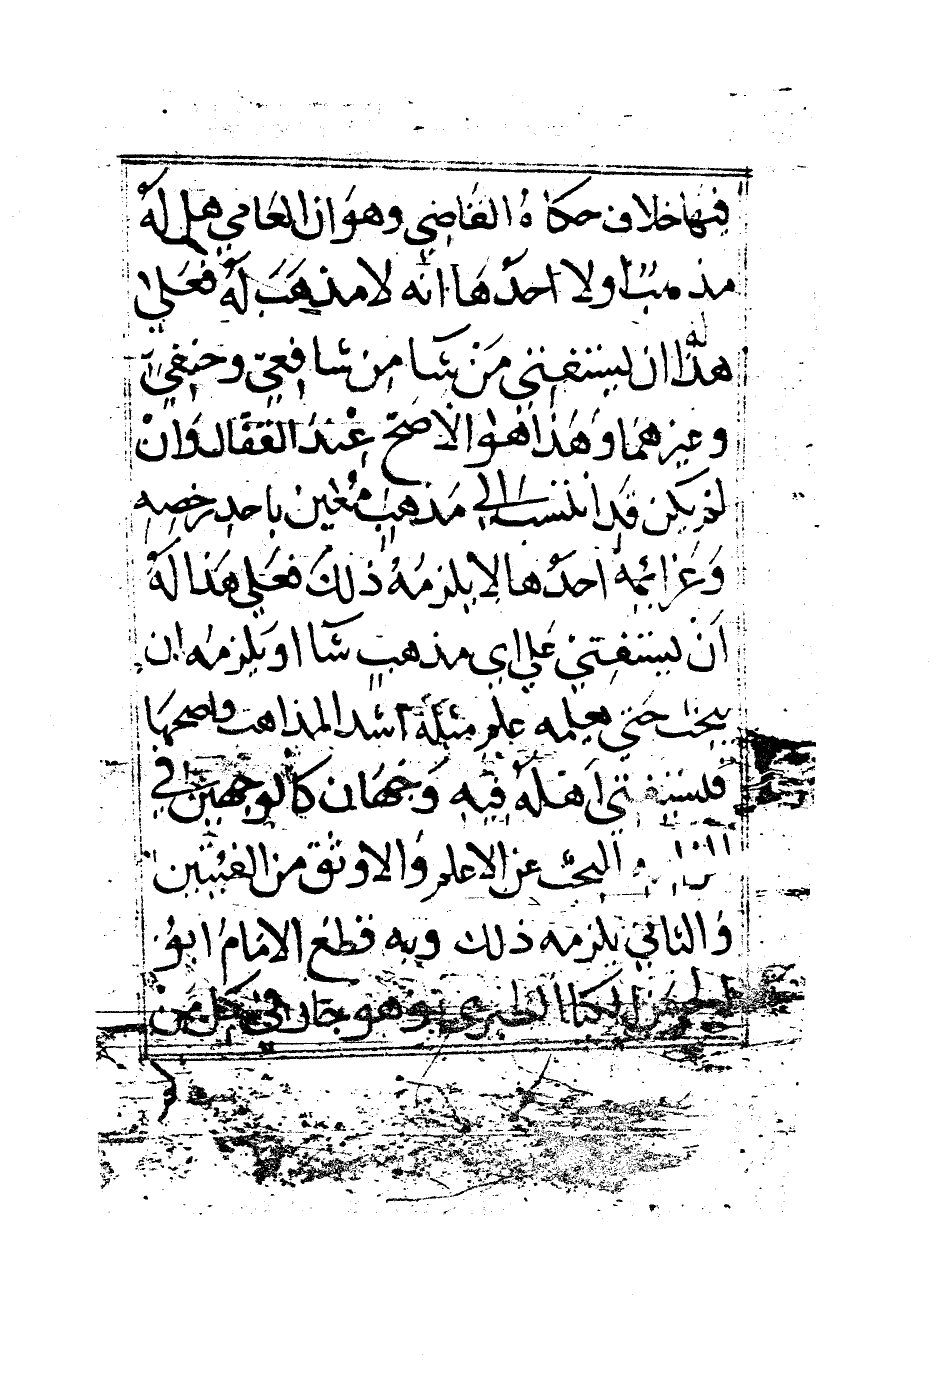 فيها خلاف حكاه القاضي وهو ان العامي هل له
مذهب اولا احدها انه لا مذهب له فعلي
هذا له ان يستفتي من شا من شافعي وحنفي
وغيرهما وهذا هو الاصح عند القفال وان
لم يكن قد انتسب الي مذهب معين ياخد برخصه
وعزائمه احدها لا يلزمه ذلك فعلي هذا له
ان يستفتي علي اي مذهب شا او يلزمه ان
يبحث حتي يعلم علم مثله اسد المذاهب واصحها
فليستفتي اهله فيه وجهان كالوجهين في
البحث عن الاعلم والاوثق من المفتيين
والثاني يلزمه ذلك وبه قطع الامام ابو
الحسن الكيا الطبري وهو جار في كل من